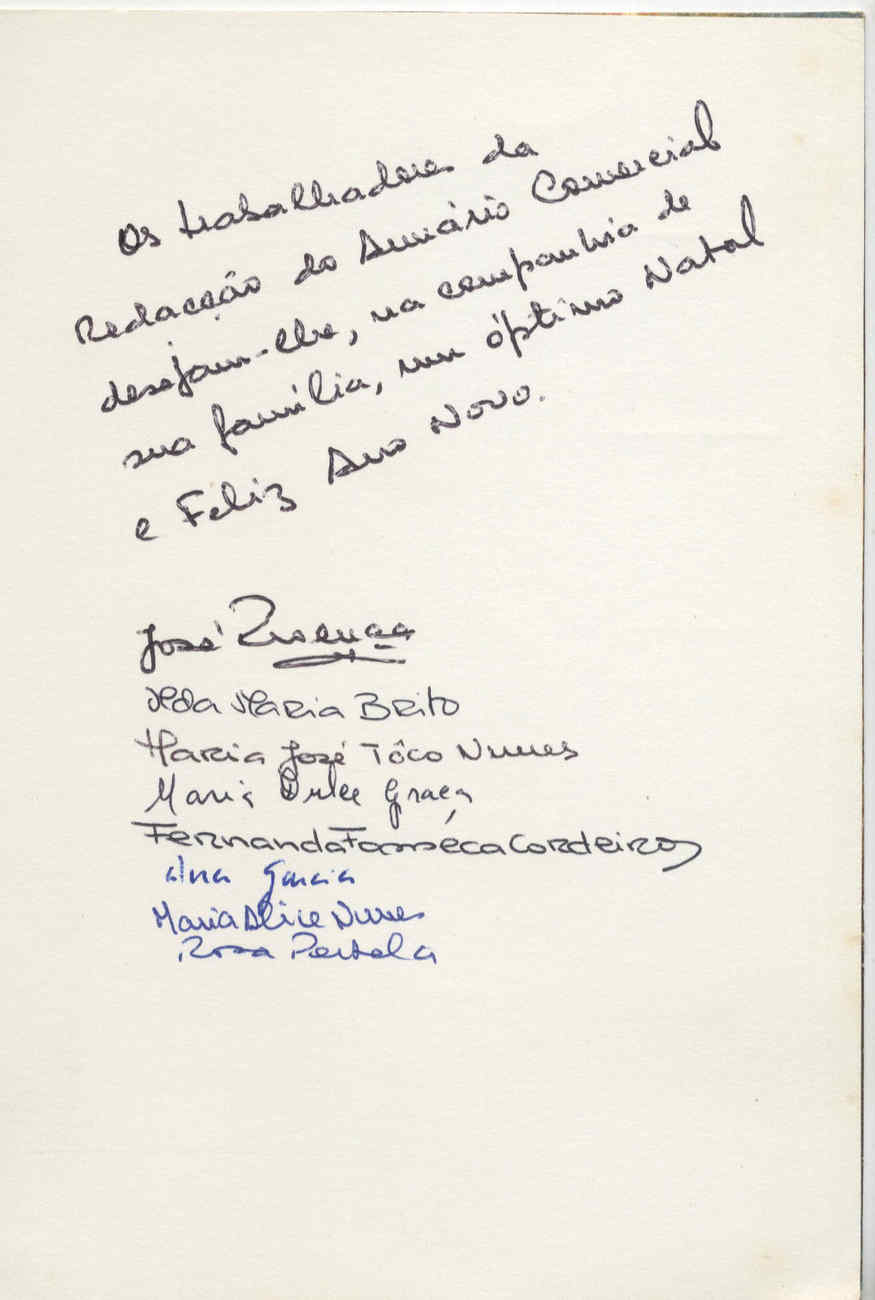 Os trabalhadores da
Redacção do Anuário Comercial
desejam-lhe, na companhia de
sua família, um óptimo Natal
e Feliz Ano Novo.
José Proença
Ilda Maria Brito
Maria José Tôco Nunes
Maria Dulce Graça
Fernanda Fonseca Cordeiro
Ana Garcia
Maria Alice Nunes
Rosa Portela